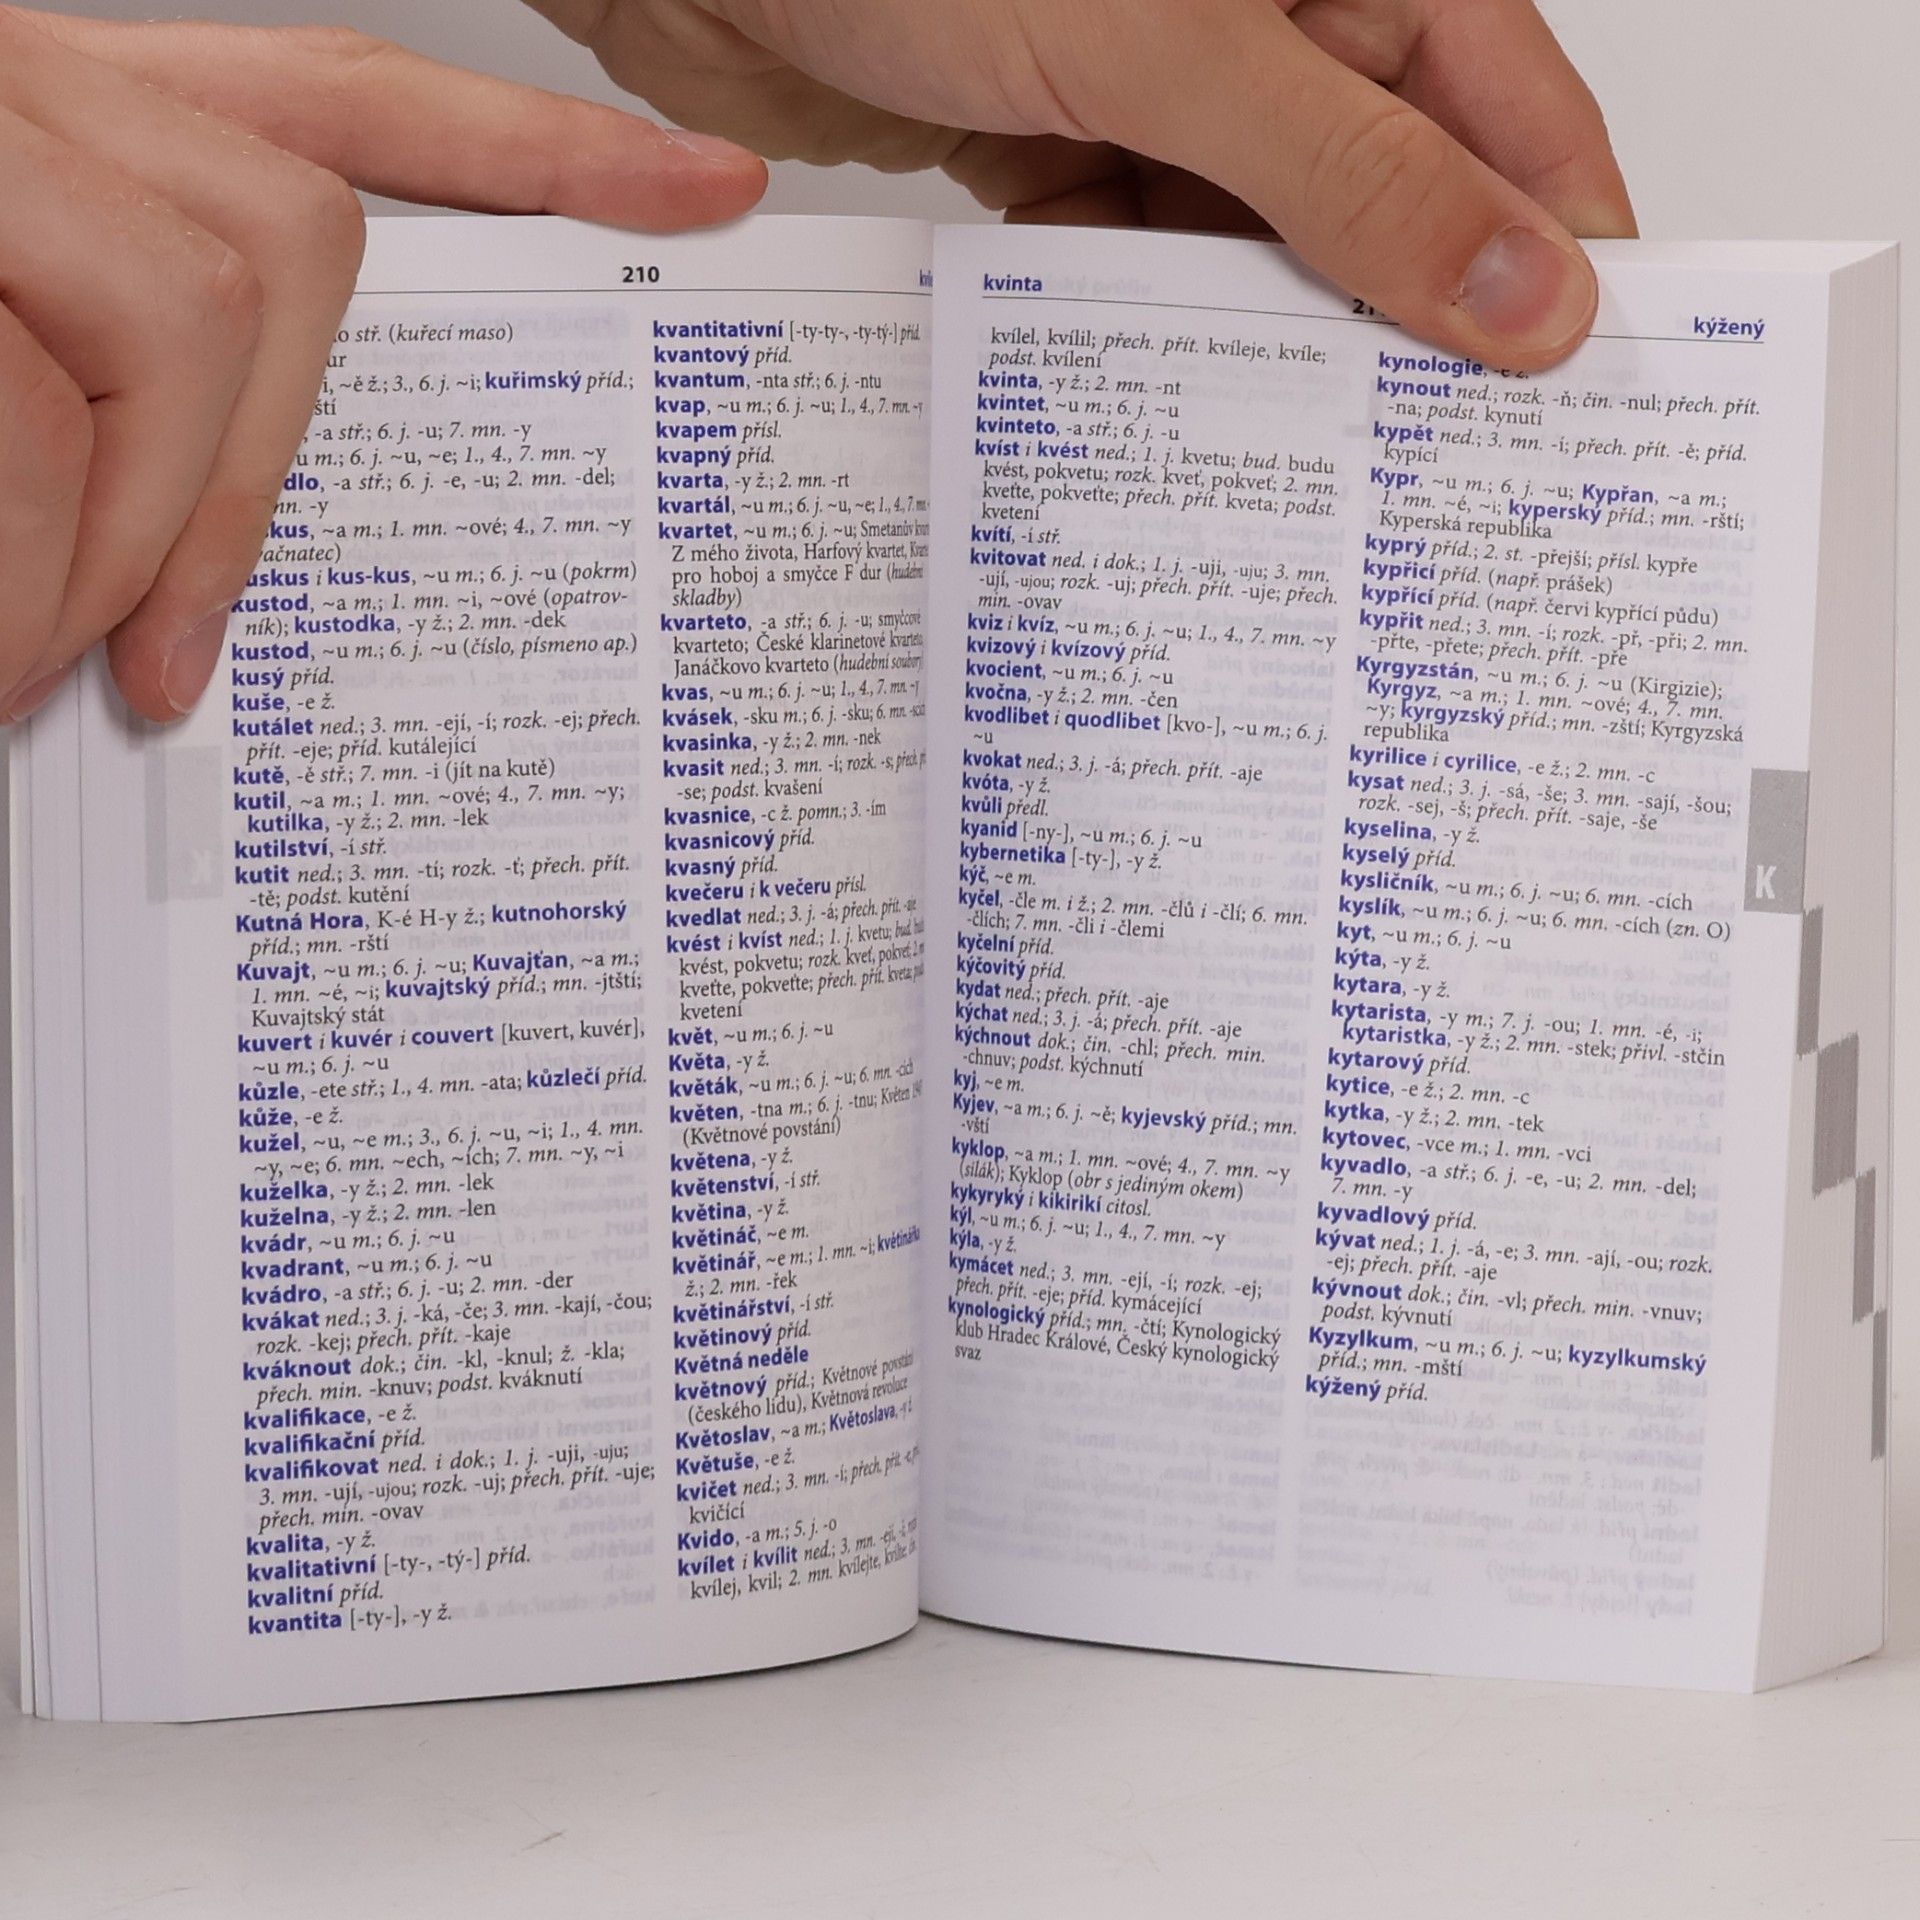 210
stř. (kuřecí maso)
~ě ž.; 3., 6. j. ~i; kuřimský příd.;
-a stř.; 6. j. -u; 7. mn. -y
u m.; 6. j. ~u, ~e; 1., 4., 7. mn. ~y
-a stř.; 6. j. -e, -u; 2. mn. -del;
-y
~a m.; 1. mn. ~ové; 4., 7. mn. ~y
i kus-kus, ~u m.; 6. j. ~u (pokrm)
kustod, ~a m.; 1. mn. ~i, ~ové (opatrov-
ník); kustodka, -y ž.; 2. mn. -dek
kustod, ~u m.; 6. j. ~u (číslo, písmeno ap.)
kusý příd.
kuše, -e ž.
kutálet ned.; 3. mn. -ejí, -í; rozk. -ej; přech.
přít. -eje; příd. kutálející
kutě, -ě stř.; 7. mn. -i (jít na kutě)
kutil, ~a m.; 1. mn. ~ové; 4., 7. mn. ~y;
kutilka, -y ž.; 2. mn. -lek
kutilství, -í stř.
kutit ned.; 3. mn. -tí; rozk. -ť; přech. přít.
-tě; podst. kutění
Kutná Hora, K-é H-y ž.; kutnohorský
příd.; mn. -rští
Kuvajt, ~u m.; 6. j. ~u; Kuvajťan, ~a m.;
1. mn. ~é, ~i; kuvajtský příd.; mn. -jtští;
Kuvajtský stát
kuvert i kuvér i couvert [kuvert, kuvér],
~u m.; 6. j. ~u
kůzle, -ete stř.; 1., 4. mn. -ata; kůzlečí příd.
kůže, -e ž.
kužel, ~u, ~e m.; 3., 6. j. ~u, ~i; 1., 4. mn.
~y, ~e; 6. mn. ~ech, ~ích; 7. mn. ~y, ~i
kuželka, -y ž.; 2. mn. -lek
kuželna, -y ž.; 2. mn. -len
kvádr, ~u m.; 6. j. ~u
kvadrant, ~u m.; 6. j. ~u
kvádro, -a stř.; 6. j. -u; 2. mn. -der
kvákat ned.; 3. j. -ká, -če; 3. mn. -kají, -čou;
rozk. -kej; přech. přít. -kaje
kváknout dok.; čin. -kl, -knul; ž. -kla;
přech. min. -knuv; podst. kváknutí
kvalifikace, -e ž.
kvalifikační příd.
kvalifikovat ned. i dok.; 1. j. -uji, -uju;
3. mn. -ují, -ujou; rozk. -uj; přech. přít. -uje;
přech. min. -ovav
kvalita, -y ž.
kvalitativní [-ty-, -tý-] příd.
kvalitní příd.
kvantita [-ty-], -y ž.
kvantitativní [-ty-ty-, -ty-tý-] příd.
kvantový příd.
kvantum, -nta stř.; 6. j. -ntu
kvap, ~u m.; 6. j. ~u; 1., 4., 7. mn. ~y
kvapem přísl.
kvapný příd.
kvarta, -y ž.; 2. mn. -rt
kvartál, ~u m.; 6. j. ~u, ~e; 1., 4., 7. mn.
kvartet, ~u m.; 6. j. ~u; Smetanův
Z mého života, Harfový kvartet,
pro hoboj a smyčce F dur (hudební
skladby)
kvarteto, -a stř.; 6. j. -u; smyčcové
kvarteto; České klarinetové kvarteto,
Janáčkovo kvarteto (hudební soubor)
kvas, ~u m.; 6. j. ~u; 1., 4., 7. mn. ~y
kvásek, -sku m.; 6. j. -sku; 6. mn.
kvasinka, -y ž.; 2. mn. -nek
kvasit ned.; 3. mn. -í; rozk. -s; přech.
-se; podst. kvašení
kvasnice, -c ž. pomn.; 3. -ím
kvasnicový příd.
kvasný příd.
kvečeru i k večeru přísl.
kvedlat ned.; 3. j. -á; přech. přít. -aje
kvést i kvíst ned.; 1. j. kvetu; bud.
kvést, pokvetu; rozk. kveť, pokveť;
kveťte, pokveťte; přech. přít. kveta;
kvetení
květ, ~u m.; 6. j. ~u
Květa, -y ž.
květák, ~u m.; 6. j. ~u; 6. mn. -cích
květen, -tna m.; 6. j. -tnu; Květen
(Květnové povstání)
květena, -y ž.
květenství, -í stř.
květina, -y ž.
květináč, ~e m.
květinář, ~e m.; 1. mn. ~i; květinářka
ž.; 2. mn. -řek
květinářství, -í stř.
květinový příd.
Květná neděle
květnový příd.; Květnové povstání
(českého lidu), Květnová revoluce
Květoslav, ~a m.; Květoslava,
Květuše, -e ž.
kvičet ned.; 3. mn. -í; přech. přít.
kvičící
Kvido, -a m.; 5. j. -o
kvílet i kvílit ned.; 3. mn. -ejí, -í;
kvílej, kvil; 2. mn. kvílejte,
kvinta
kýžený
kvílel, kvílil; přech. přít. kvíleje, kvíle;
podst. kvílení
kvinta, -y ž.; 2. mn. -nt
kvintet, ~u m.; 6. j. ~u
kvinteto, -a stř.; 6. j. -u
kvíst i kvést ned.; 1. j. kvetu; bud. budu
kvést, pokvetu; rozk. kveť, pokveť; 2. mn.
kveťte, pokveťte; přech. přít. kveta; podst.
kvetení
kvítí, -í stř.
kvitovat ned. i dok.; 1. j. -uji, -uju; 3. mn.
-ují, -ujou; rozk. -uj; přech. přít. -uje; přech.
min. -ovav
kviz i kvíz, ~u m.; 6. j. ~u; 1., 4., 7. mn. ~y
kvizový i kvízový příd.
kvocient, ~u m.; 6. j. ~u
kvočna, -y ž.; 2. mn. -čen
kvodlibet i quodlibet [kvo-], ~u m.; 6. j.
~u
kvokat ned.; 3. j. -á; přech. přít. -aje
kvóta, -y ž.
kvůli předl.
kyanid [-ny-], ~u m.; 6. j. ~u
kybernetika [-ty-], -y ž.
kýč, ~e m.
kyčel, -čle m. i ž.; 2. mn. -člů i -člí; 6. mn.
-člích; 7. mn. -čli i -člemi
kyčelní příd.
kýčovitý příd.
kydat ned.; přech. přít. -aje
kýchat ned.; 3. j. -á; přech. přít. -aje
kýchnout dok.; čin. -chl; přech. min.
-chnuv; podst. kýchnutí
kyj, ~e m.
Kyjev, ~a m.; 6. j. ~ě; kyjevský příd.; mn.
-vští
kyklop, ~a m.; 1. mn. ~ové; 4., 7. mn. ~y
(silák); Kyklop (obr s jediným okem)
kykyryký i kikirikí citosl.
kýl, ~u m.; 6. j. ~u; 1., 4., 7. mn. ~y
kýla, -y ž.
kymácet ned.; 3. mn. -ejí, -í; rozk. -ej;
přech. přít. -eje; příd. kymácející
kynologický příd.; mn. -čtí; Kynologický
klub Hradec Králové, Český kynologický
svaz
kynologie, -e ž.
kynout ned.; rozk. -ň; čin. -nul; přech. přít.
-na; podst. kynutí
kypět ned.; 3. mn. -í; přech. přít. -ě; příd.
kypící
Kypr, ~u m.; 6. j. ~u; Kypřan, ~a m.;
1. mn. ~é, ~i; kyperský příd.; mn. -rští;
Kyperská republika
kyprý příd.; 2. st. -přejší; přísl. kypře
kypřicí příd. (např. prášek)
kypřící příd. (např. červi kypřící půdu)
kypřit ned.; 3. mn. -í; rozk. -př, -při; 2. mn.
-přte, -přete; přech. přít. -pře
Kyrgyzstán, ~u m.; 6. j. ~u (Kirgizie);
Kyrgyz, ~a m.; 1. mn. ~ové; 4., 7. mn.
~y; kyrgyzský příd.; mn. -zští; Kyrgyzská
republika
kyrilice i cyrilice, -e ž.; 2. mn. -c
kysat ned.; 3. j. -sá, -še; 3. mn. -sají, -šou;
rozk. -sej, -š; přech. přít. -saje, -še
kyselina, -y ž.
kyselý příd.
kysličník, ~u m.; 6. j. ~u; 6. mn. -cích
kyslík, ~u m.; 6. j. ~u; 6. mn. -cích (zn. O)
kyt, ~u m.; 6. j. ~u
kýta, -y ž.
kytara, -y ž.
kytarista, -y m.; 7. j. -ou; 1. mn. -é, -i;
kytaristka, -y ž.; 2. mn. -stek; přivl. -stčin
kytarový příd.
kytice, -e ž.; 2. mn. -c
kytka, -y ž.; 2. mn. -tek
kytovec, -vce m.; 1. mn. -vci
kyvadlo, -a stř.; 6. j. -e, -u; 2. mn. -del;
7. mn. -y
kyvadlový příd.
kývat ned.; 1. j. -á, -e; 3. mn. -ají, -ou; rozk.
-ej; přech. přít. -aje
kývnout dok.; čin. -vl; přech. min. -vnuv;
podst. kývnutí
Kyzylkum, ~u m.; 6. j. ~u; kyzylkumský
příd.; mn. -mští
kýžený příd.
K